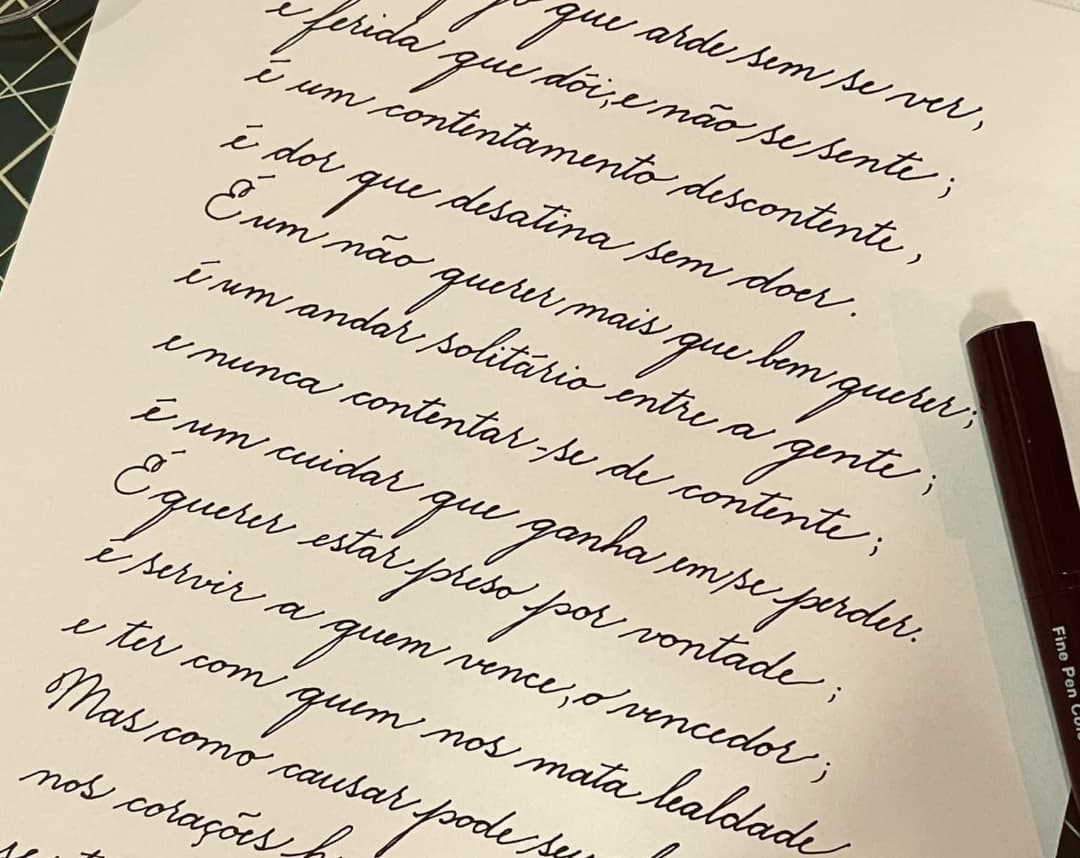 que arde sem se ver,
é ferida que dói, e não se sente;
é um contentamento descontente,
é dor que desatina sem doer.
É um não querer mais que bem querer;
é um andar solitário entre a gente;
e nunca contentar-se de contente;
é um cuidar que ganha em se perder.
É querer estar preso por vontade;
é servir a quem vence, o vencedor;
e ter com quem nos mata lealdade
Mas como causar pode seu
nos corações
Fine Pen